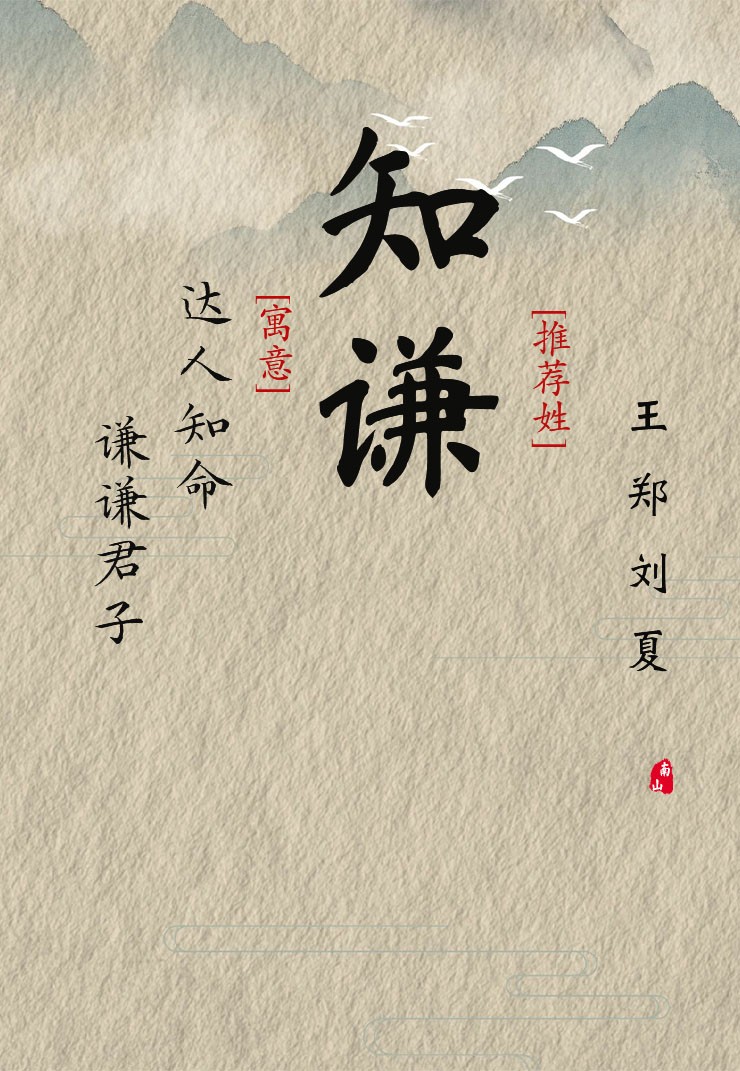 知谦
[推荐姓]
王郑刘夏
[寓意]
达人知命
谦谦君子
南山